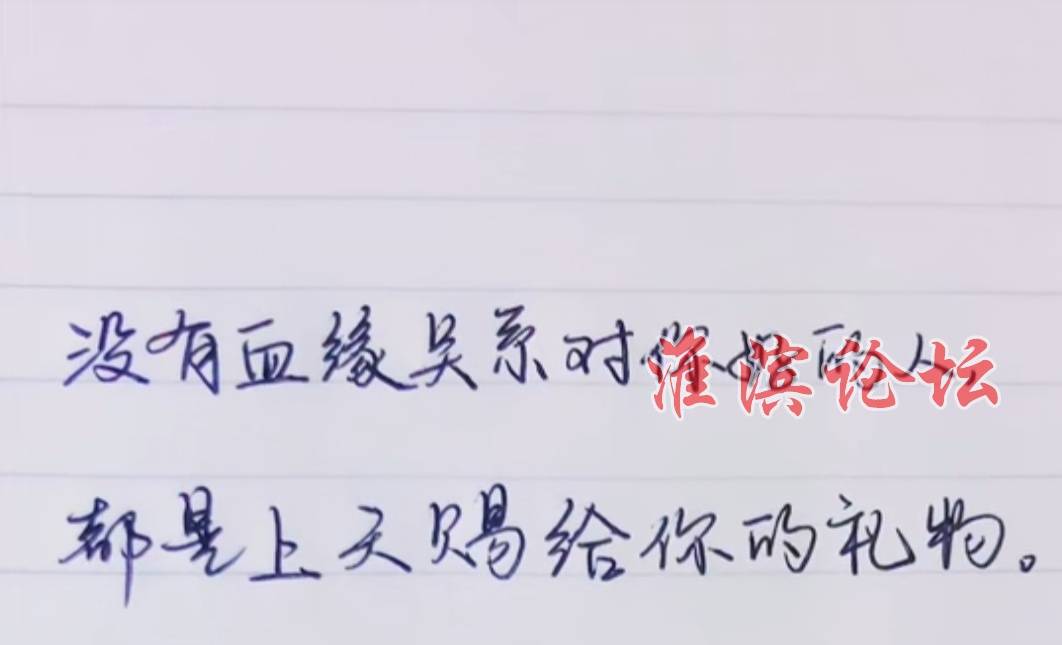 没有血缘关系对你好的人,
都是上天赐给你的礼物。
淮滨论坛